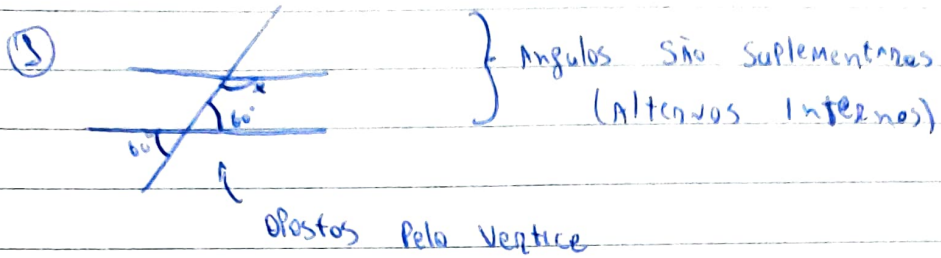 3
Angulos são suplementares
(Alternos Internos)
x
60°
60°
opostos pelo vertice